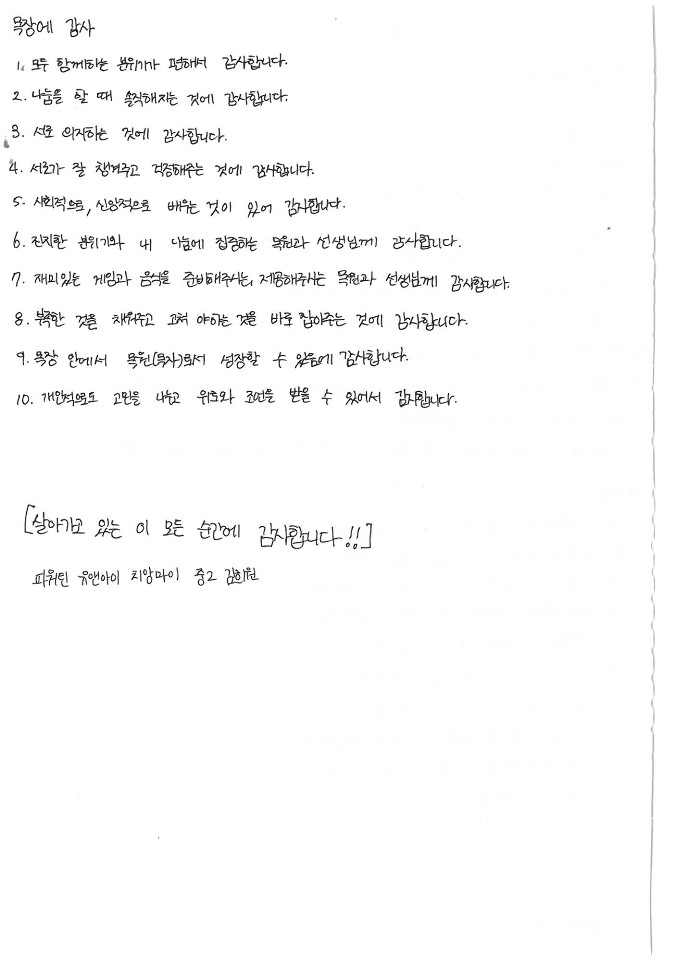 목장에 감사
1. 모두 함께하는 분위기가 편해서 감사합니다.
2. 나눔을 할 때 솔직해지는 것에 감사합니다.
3. 서로 의지하는 것에 감사합니다.
4. 서로가 잘 챙겨주고 걱정해주는 것에 감사합니다.
5. 사회적으로, 신앙적으로 배우는 것이 있어 감사합니다.
6. 진지한 분위기와 내 나눔에 집중하는 목원과 선생님께 감사합니다.
7. 재미있는 게임과 음식을 준비해주시는, 제공해주시는 목원과 선생님께 감사합니다.
8. 부족한 것을 채워주고 고쳐 야하는 것을 바로 잡아주는 것에 감사합니다.
9. 목장 안에서 목원(목자)로서 성장할 수 있음에 감사합니다.
10. 개인적으로도 고민을 나누고 위로와 조언을 받을 수 있어서 감사합니다.
[살아가고 있는 이 모든 순간에 감사합니다!!]
파워틴 유앤아이 치앙마이 중2 김희원